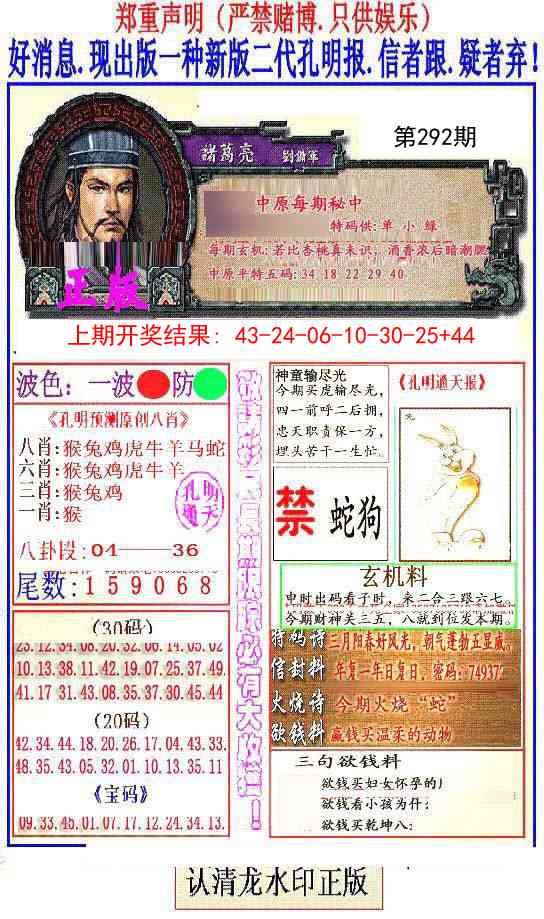 郑重声明（严禁赌博.只供娱乐）
好消息.现出版一种新版二代孔明报.信者跟.疑者弃！
第292期
諸葛亮
中原每期秘中
特码供: 单 小 绿
每期玄机: 若比杏桃真未识，酒香浓后暗潮腮
中原平特五码: 34 18 22 29 40
正版
上期开奖结果: 43-24-06-10-30-25+44
波色：一波 防
《孔明预测原创八肖》
八肖: 猴兔鸡虎牛羊马蛇
六肖: 猴兔鸡虎牛羊
三肖: 猴兔鸡
一肖: 猴
孔明通天
八卦段: 04——36
尾数: 1 5 9 0 6 8
(30码)
23.12.34.08.20.32.06.14.05.02
10.13.38.11.42.19.07.25.37.49.
41.17.31.43.08.35.37.30.45.44
(20码)
42.34.44.18.20.26.17.04.43.33.
48.35.43.05.32.01.10.13.35.11
《宝码》
09.33.45.01.07.17.12.24.34.13.
神童输尽光
今期买虎输尽光，
四一前呼二后拥，
忠天职责保一方，
埋头苦干一生忙。
《孔明通天报》
禁 蛇狗
玄机料
申时出码看子时，来二合三跟六七。
今期财神关三五，八就到位发本期。
特码诗 三月阳春好风光，朝气蓬勃五显威。
信封料 年复一年日复日，密码：74937
火烧诗 今期火烧“蛇”
欲钱料 赢钱买温柔的动物
三句欲钱料
欲钱买妇女怀孕的
欲钱看小孩为什:
欲钱买乾坤八:
认清龙水印正版